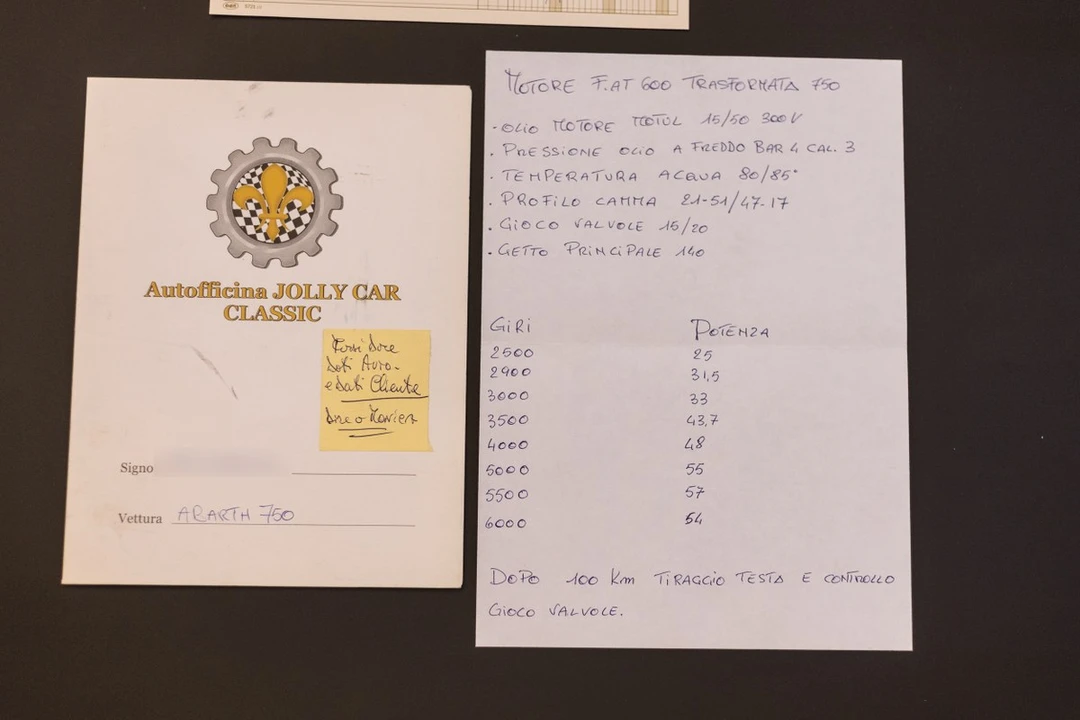 Autofficina JOLLY CAR
CLASSIC
Dati Auto-
e Dati Cliente
Signo
Vettura ABARTH 750
MOTORE FIAT 600 TRASFORMATA 750
- OLIO MOTORE MOTUL 15/50 300V
. PRESSIONE OLIO A FREDDO BAR 4 CAL. 3
. TEMPERATURA ACQUA 80/85°
. PROFILO CAMMA 21-51/47-17
. GIOCO VALVOLE 15/20
. GETTO PRINCIPALE 140
GIRI POTENZA
2500 25
2900 31,5
3000 33
3500 43,7
4000 48
5000 55
5500 57
6000 54
DOPO 100 Km TIRAGGIO TESTA E CONTROLLO
GIOCO VALVOLE.